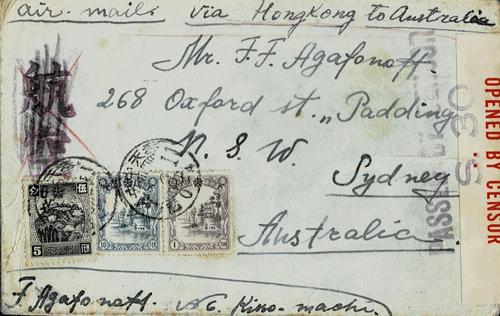 air mail. via HongKong to Australia
Mr. F. F. Agafonoff.
268 Oxford st., Padding
N. S. W.
Sydney
Australia
F. Agafonoff. Kiso-machi.
航
5
10
1
PASSED
S 30
OPENED BY CENSOR